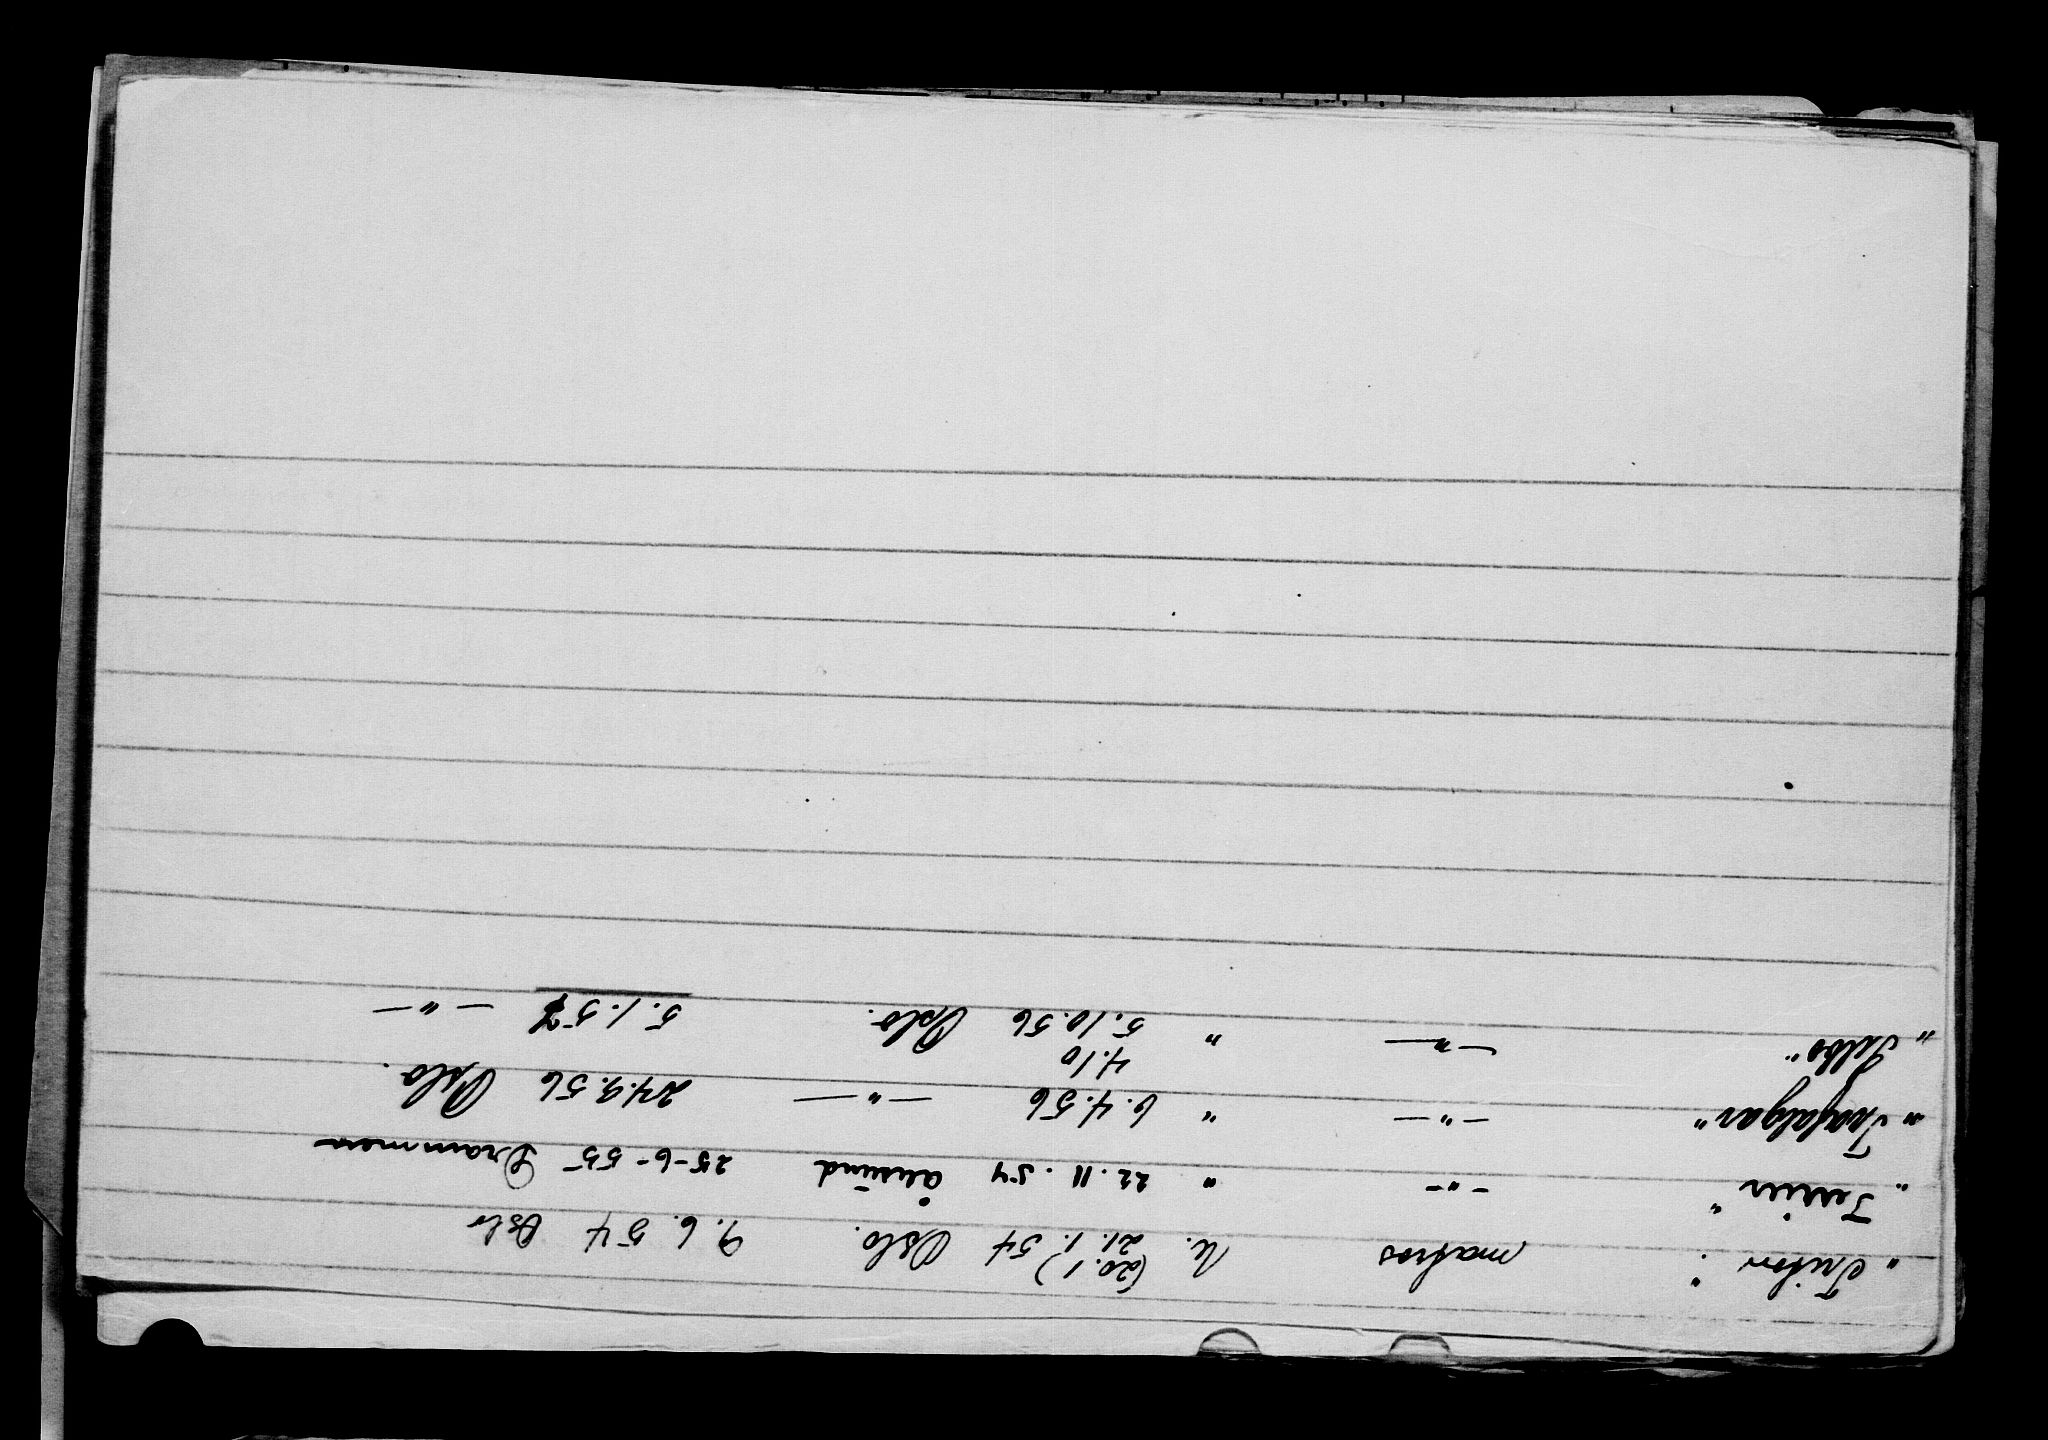 "Triton". matros U. (20.1) 21.1.54 Oslo. 9.6.54 Oslo
"Terrier" -"- " 22.11.54 Ålesund 25-6-55 Drammen
"Trafalgar" -"- " 6.4.56 -"- 24.9.56 Oslo.
4.10
-"- " 5.10.56 Oslo. 5.1.57 -"-